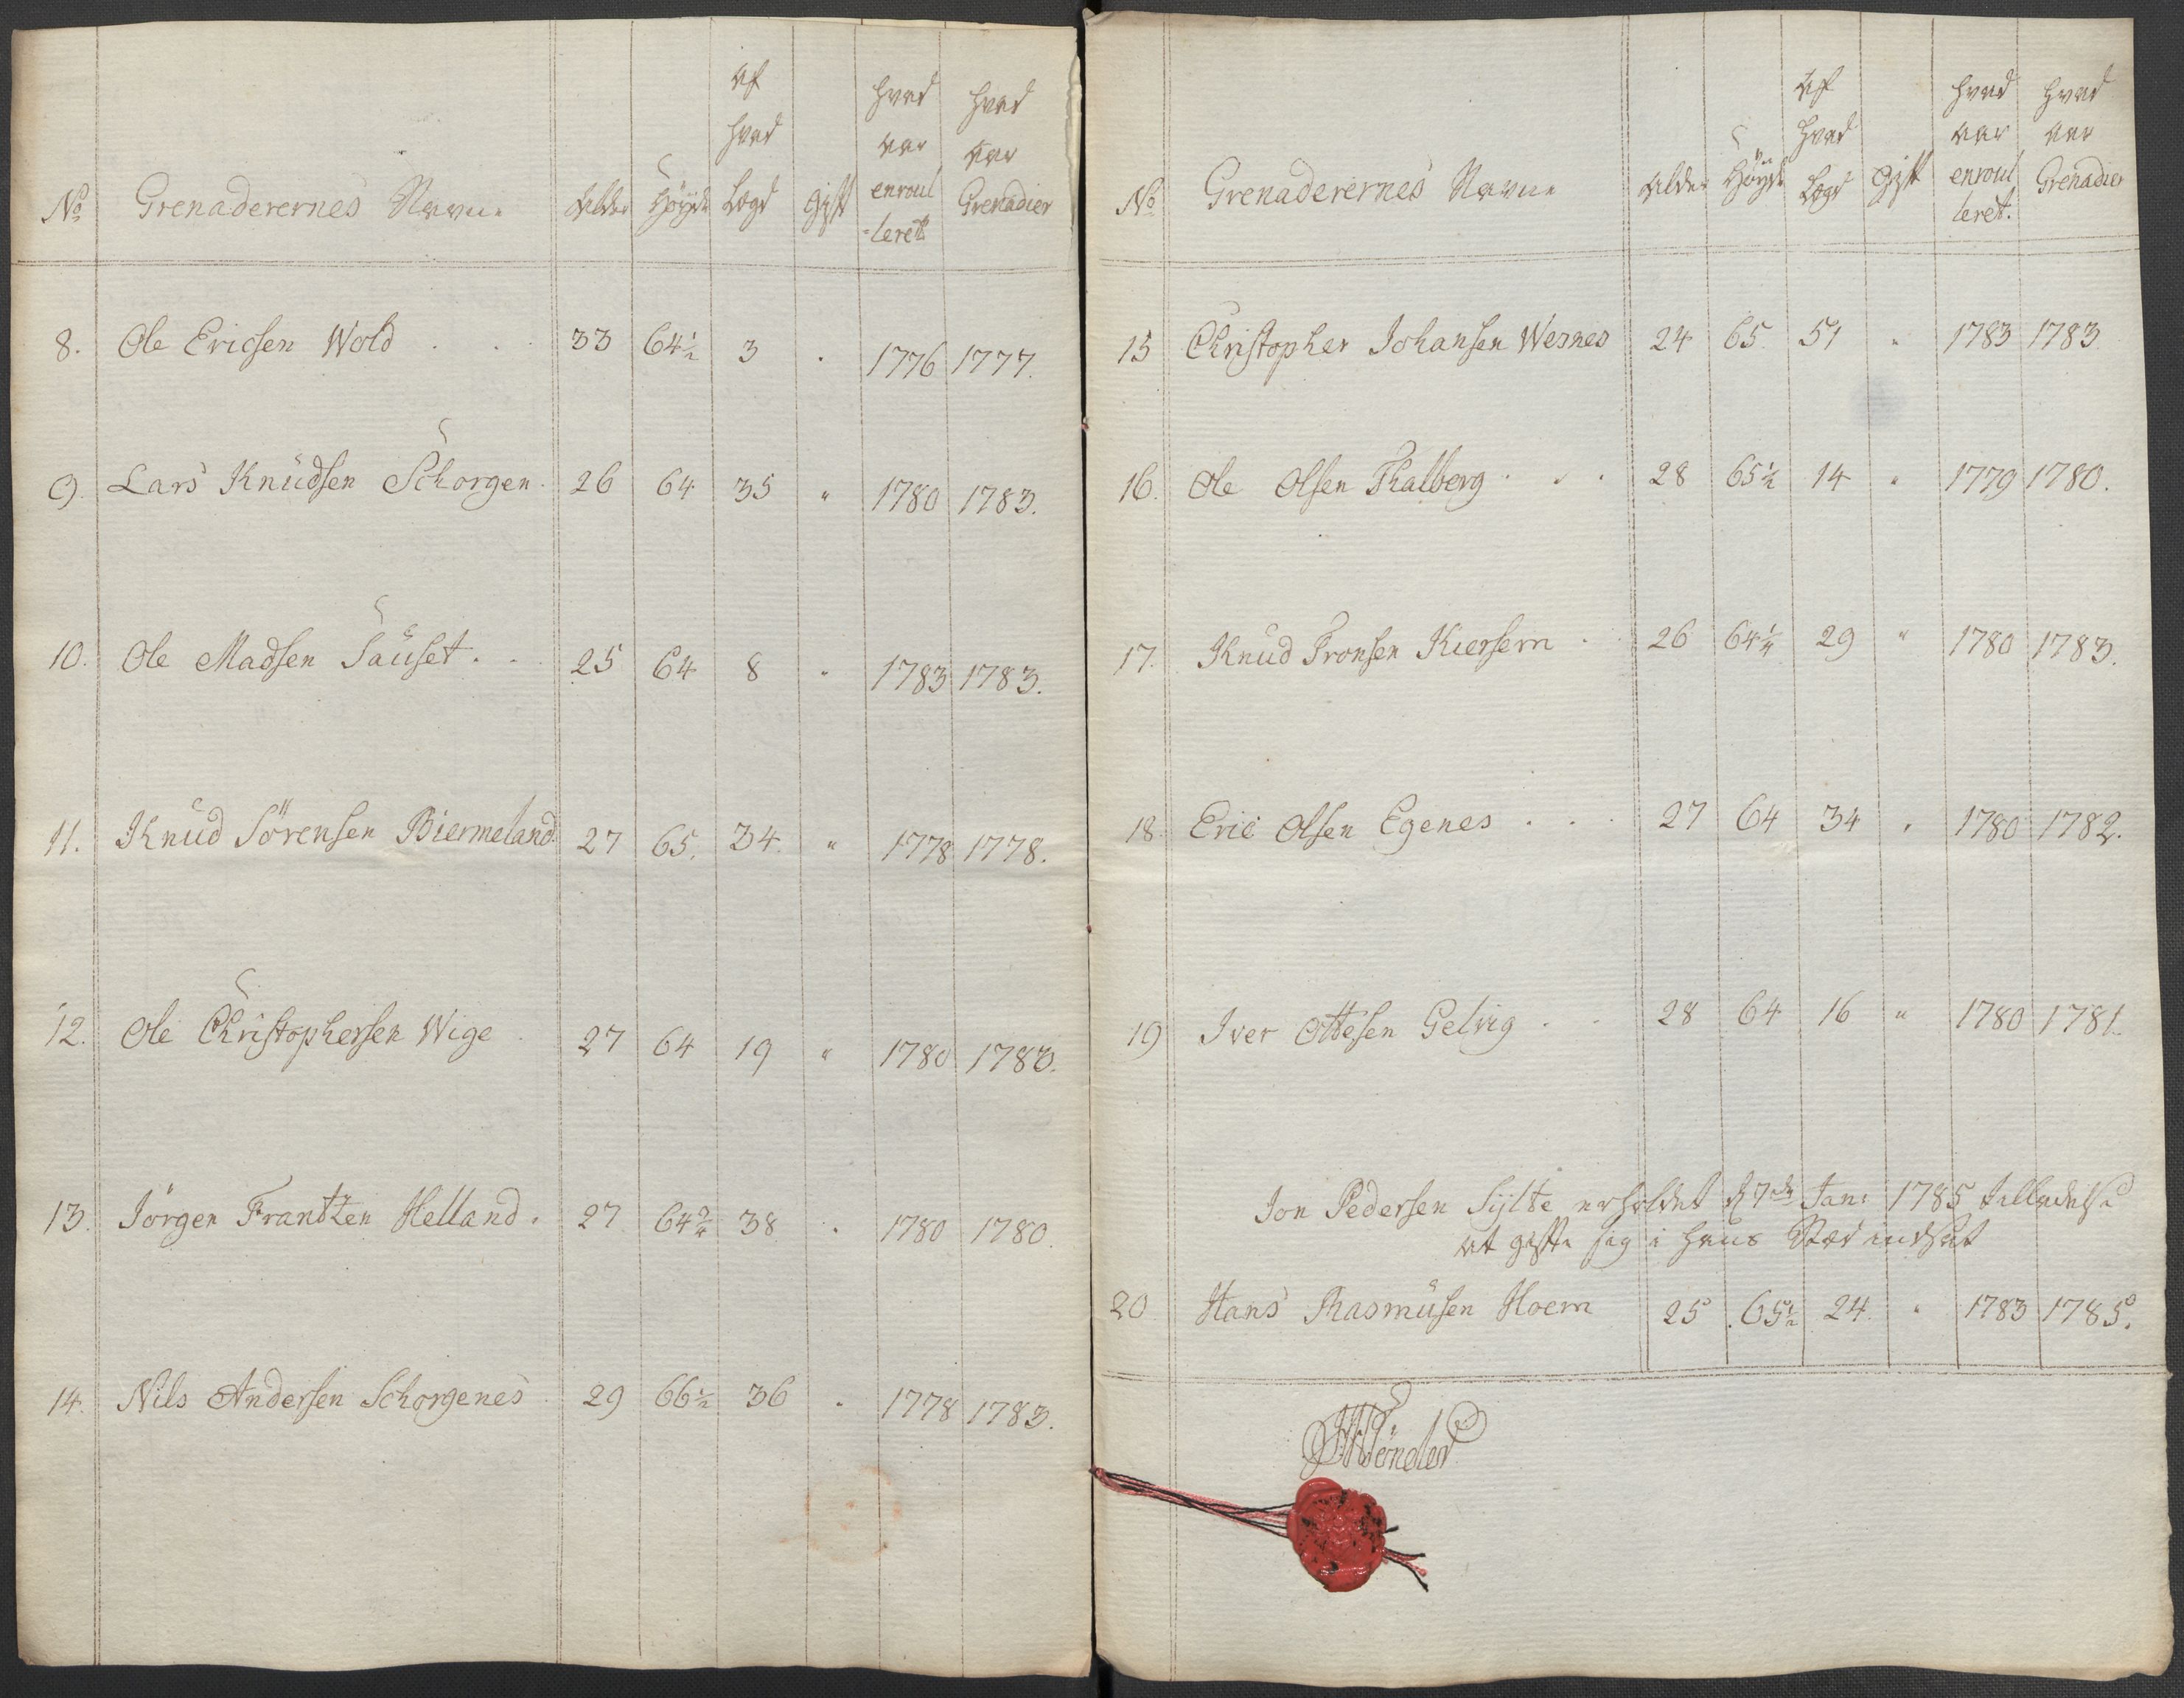 No Grenaderernes Navne Alder Höyde Af hvad Lægd Gift hvad aar enroulleret hvad aar Grenadier
8. Ole Ericsen Wold . . . 33 64½ 3 . 1776 1777.
9. Lars Knudsen Schorgen. 26 64 35 " 1780 1783.
10. Ole Madsen Sauset. . . 25 64 8 " 1783 1783.
11. Knud Sörensen Biermeland. 27 65. 34 " 1778 1778.
12. Ole Christophersen Wige . 27 64 19 " 1780 1783.
13. Jörgen Frantzen Helland. 27 64¾ 38 . 1780 1780.
14. Nils Andersen Schorgenes . 29 66½ 36 . 1778 1783.
No Grenaderernes Navne Alder Höyde Af hvad Lægd Gift hvad aar enroulleret. hvad aar Grenadier
15 Christopher Johansen Wesnes 24 65. 51 " 1783 1783
16. Ole Olsen Thalberg . . . 28 65½ 14 " 1779 1780.
17. Knud Tronsen Kiersem . . 26 64¼ 29 " 1780 1783.
18. Eric Olsen Egenes . . . 27 64 34 " 1780 1782.
19 Iver Ottesen Gelvig . . 28 64 16 " 1780 1781.
Jon Pedersen Sylte erholdet d 7de Jan: 1785 Tilladelse
at gifte sig i hans Stæd indsat
20 Hans Rasmusen Hoem 25 65½ 24. " 1783 1785.